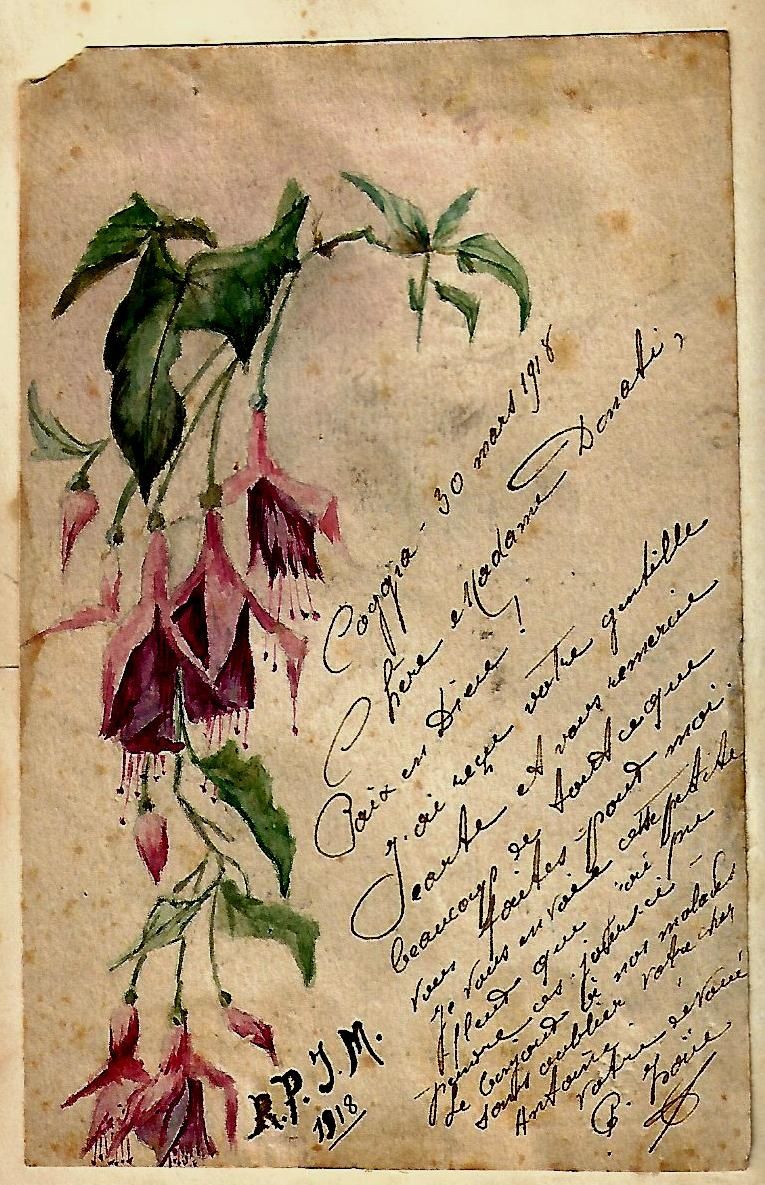 Coggia - 30 mars 1918
Chère Madame Donati,
Paix en Dieu !
J'ai reçu votre gentille
carte et vous remercie
beaucoup de tout ce que
vous faites pour moi.
Je vous envoie cette petite
fleur que j'ai pu
peindre ces jours-ci -
Le bonjour à nos malades
sans oublier votre cher
Antoine.
Votre dévoué
P.
R.P.J.M.
1918